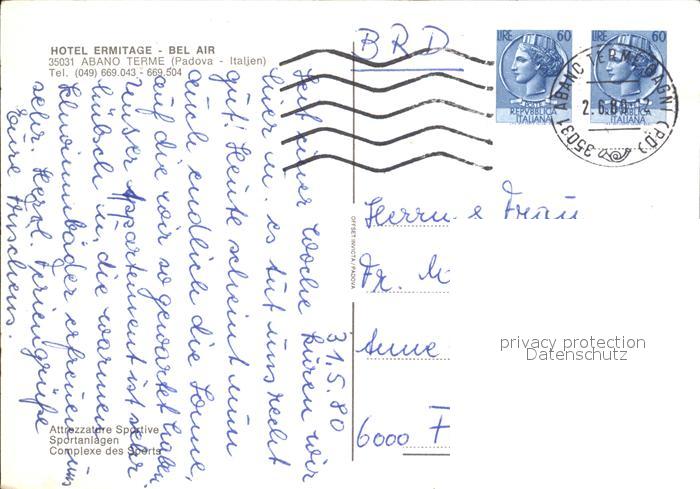 HOTEL ERMITAGE - BEL AIR
35031 ABANO TERME (Padova - Italjen)
Tel. (049) 669.043 - 669.504
BRD
LIRE 60
REPVBBLICA
ITALIANA
LIRE 60
REPVBBLICA
ITALIANA
35031 ABANO TERME BAGNI (PD)
2.6.80
31.5.80
Seit einer Woche kuren wir
hier u. es tut uns recht
gut! Heute scheint nun
auch endlich die Sonne,
auf die wir so gewartet haben.
Unser Appartement ist sehr
hübsch u. die warmen
Schwimmbäder erfreuen uns
sehr. Herzl. Feriengrüße
Eure
OFFSET-INVICTA/PADOVA
Herrn & Frau
Dr.
Anne
6000 F
privacy protection
Datenschutz
Attrezzature Sportive
Sportanlagen
Complexe des Sports